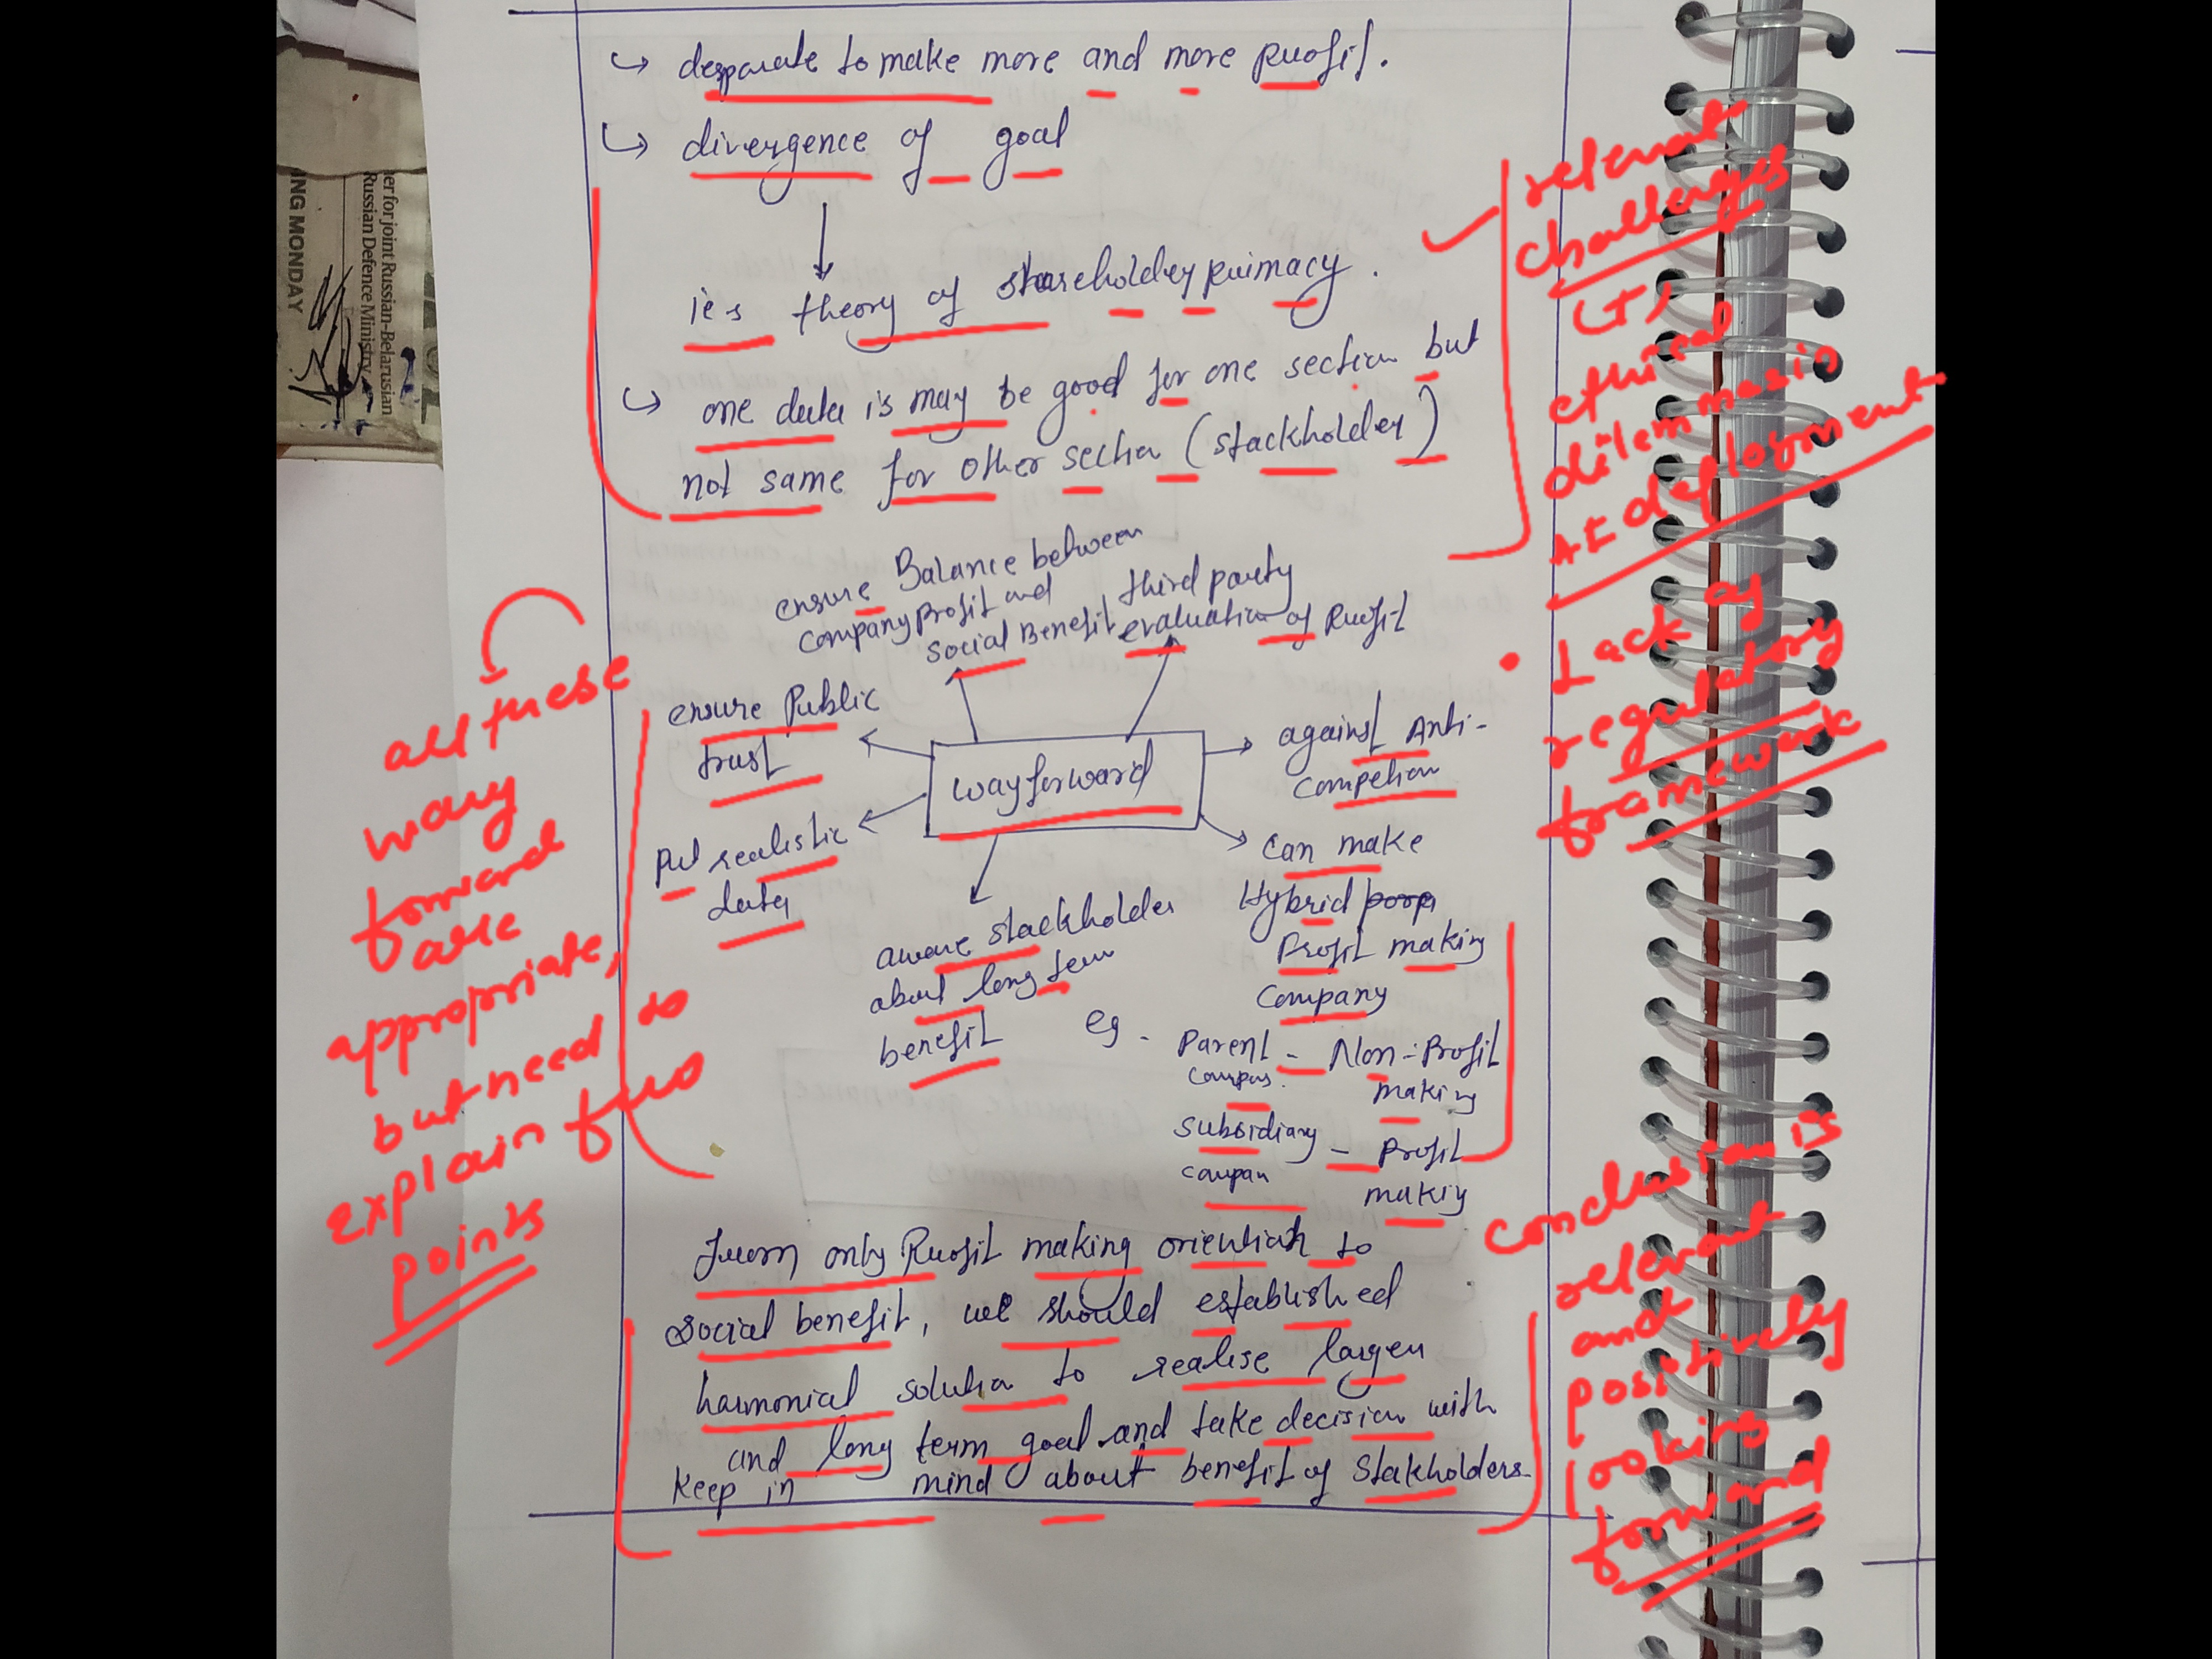 ↳ desparate to make more and more profit.
↳ divergence of goal
ies theory of shareholder primacy.
↳ one data is may be good for one section but
not same for other section (stackholder)
relevant
challenges
(+)
ethical
dilemmas in
AI deployment
• Lack of
regulatory
framework
ensure Balance between
company profit and
social Benefit
third party
evaluation of Profit
ensure Public
trust
way forward
against Anti-
Competion
Put realistic
data
aware stackholder
about long term
benefit
can make
Hybrid
Profit making
Company
eg - Parent - Non-Profit
making
Subsidiary - Profit
compan
making
all these
way
forward
are
appropriate,
but need to
explain few
points
From only Profit making orientiah to
social benefit, we should established
harmonial solution to realise larger
and long term goal and take decision with
keep in mind about benefit of stakholders
conclusion is
relevant
and
positively
looking
forward
er for joint Russian-Belarusian
Russian Defence Ministry
ING MONDAY